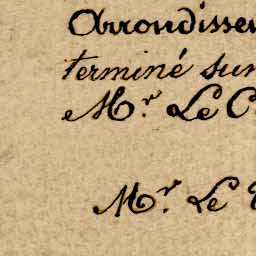 Arrondissem
terminé sur
Mr. Le C
Mr. Le